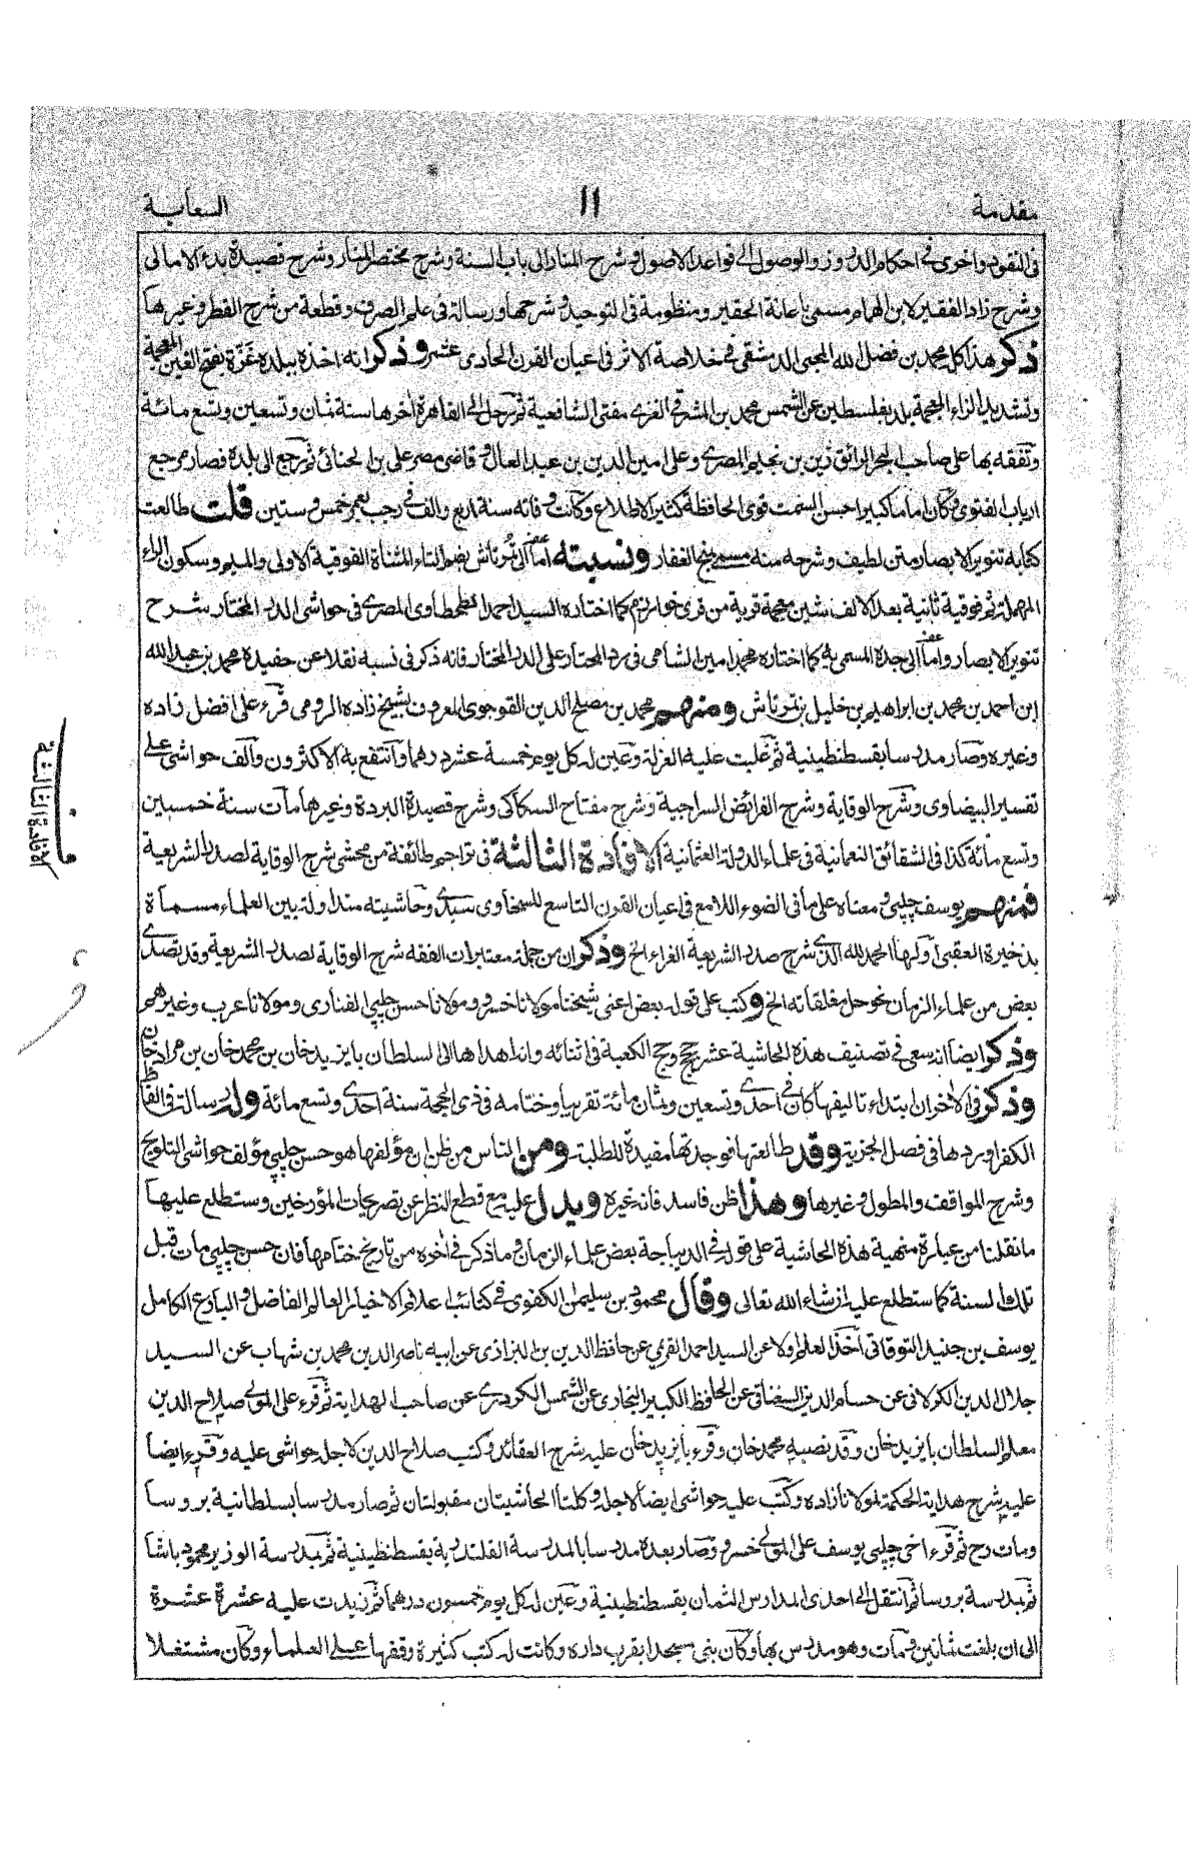 مقدمة
١١
السعاية
في النقود واخرى في احكام الدروز والوصول الى قواعد الاصول وشرح المنار الى باب السنة وشرح مختصر المنار وشرح قصيدة بدء الامالى
وشرح زاد الفقير لابن الهمام مسمى باعانة الحقير ومنظومة فى التوحيد وشرحها ورسالة فى علم الصرف وقطعة من شرح القطر وغيرها
ذكر هذا كله محمد بن فضل الله المحبى الدمشقى فى خلاصة الاثر فى اعيان القرن الحادى عشر وذكر انه اخذ ببلده غزة بفتح الغين المعجمة
وتشديد الزاء المعجمة بلد بفلسطين عن الشمس محمد بن المشرقى الغزى مفتى الشافعية ثم رحل الى القاهرة آخرها سنة ثمان وتسعين وتسع مائة
وتفقه بها على صاحب البحر الرائق زين بن نجيم المصرى وعلى امين الدين بن عبد العال وقاضى مصر على بن الحنائى ثم رجع الى بلده فصار مرجع
ارباب الفتوى وكان اماما كبيرا حسن السمت قوى الحافظة كثير الاطلاع وكانت وفاته سنة اربع والف فى رجب بعمر خمس وستين قلت طالعت
كتابه تنوير الابصار متن لطيف وشرحه منه مسمى بمنح الغفار ونسبته اما الى تمرتاش بضم التاء المثناة الفوقية الاولى والميم وسكون الراء
المهملة ثم فوقية ثانية بعد الالف شين معجمة قرية من قرى خوارزم كما اختاره السيد احمد الطحطاوى المصرى فى حواشى الدر المختار شرح
تنوير الابصار واما الى جده المسمى به كما اختاره محمد امين الشامى فى رد المحتار على الدر المختار فانه ذكر فى نسبه نقلا عن حفيده محمد بن عبد الله
ابن احمد بن محمد بن ابراهيم بن خليل بن تمرتاش ومنهم محمد بن مصلح الدين القوجوى المعروف بشيخ زاده الرومى قرء على افضل زاده
وغيره وصار مدرسا بقسطنطينية ثم غلبت عليه العزلة وعين له كل يوم خمسة عشر درهما وانتفع به الاكثرون والف حواشى على
تفسير البيضاوى وشرح الوقاية وشرح الفرائض السراجية وشرح مفتاح السكاكى وشرح قصيدة البردة وغيرها مات سنة خمسين
وتسع مائة كذا فى الشقائق النعمانية فى علماء الدولة العثمانية الافادة الثالثة فى تراجم طائفة من محشى شرح الوقاية لصدر الشريعة
فمنهم يوسف چلپى ومعناه على ما فى الضوء اللامع فى اعيان القرن التاسع للسخاوى سيدى وحاشيته متداولة بين العلماء مسماة
بذخيرة العقبى اولها الحمد لله الذى شرح صدر الشريعة الغراء الخ وذكر ان من جملة معتبرات الفقه شرح الوقاية لصدر الشريعة وقد تصدى
بعض من علماء الزمان نحو حل مغلقاته الخ وكتب على قوله بعض اعنى شيخنا مولانا خسرو ومولانا حسن چلپى الفنارى ومولانا عرب وغيرهم
وذكر ايضا انه سعى فى تصنيف هذه الحاشية عشر حجج وحج الكعبة فى اثنائه وانه اهداها الى السلطان بايزيد خان بن محمد خان بن مراد خان
وذكر فى الآخر ان ابتداء تاليفها كان فى احدى وتسعين وثمان مائة تقريبا وختامه فى ذى الحجة سنة احدى وتسع مائة وله رسالة فى الفاظ
الكفر اوردها فى فصل الجزية وقد طالعتها فوجدتها مفيدة للطلبة ومن الناس من ظن ان مؤلفها هو حسن چلپى مؤلف حواشى التلويح
وشرح المواقف والمطول وغيرها وهذا ظن فاسد فانه غيره ويدل عليه مع قطع النظر عن تصريحات المؤرخين وستطلع عليها
ما نقلنا من عبارة منهية هذه الحاشية على قوله فى الديباجة بعض علماء الزمان وما ذكر فى آخره من تاريخ ختامها فان حسن چلپى مات قبل
تلك السنة كما ستطلع عليه ان شاء الله تعالى وقال محمود بن سليمان الكفوى فى كتائب اعلام الاخيار العالم الفاضل والبارع الكامل
يوسف بن جنيد التوقاتى اخذ العلم اولا عن السيد احمد القريمى عن حافظ الدين بن البزازى عن ابيه ناصر الدين محمد بن شهاب عن السيد
جلال الدين الكرلانى عن حسام الدين السغناقى عن الحافظ الكبير البخارى عن الشمس الكردرى عن صاحب الهداية ثم قرء على المولى صلاح الدين
معلم السلطان بايزيد خان وقد نصبه محمد خان وقرء بايزيد خان عليه شرح العقائد وكتب صلاح الدين لاجله حواشى عليه وقرء ايضا
عليه شرح هداية الحكمة لمولانا زاده وكتب عليه حواشى ايضا لاجله وكلتا الحاشيتان مقبولتان ثم صار مدرسا بسلطانية بروسا
ومات رح ثم قرء اخى چلپى يوسف على المولى خسرو وصار بعده مدرسا بالمدرسة القلندرية بقسطنطينية ثم بمدرسة الوزير محمود باشا
ثم بمدرسة بروسا ثم انتقل الى احدى المدارس الثمان بقسطنطينية وعين له كل يوم خمسون درهما ثم زيدت عليه عشرة عشرة
الى ان بلغت ثمانين ومات وهو مدرس بها وكان بنى مسجدا بقرب داره وكانت له كتب كثيرة وقفها على العلماء وكان مشتغلا
الافادة الثالثة